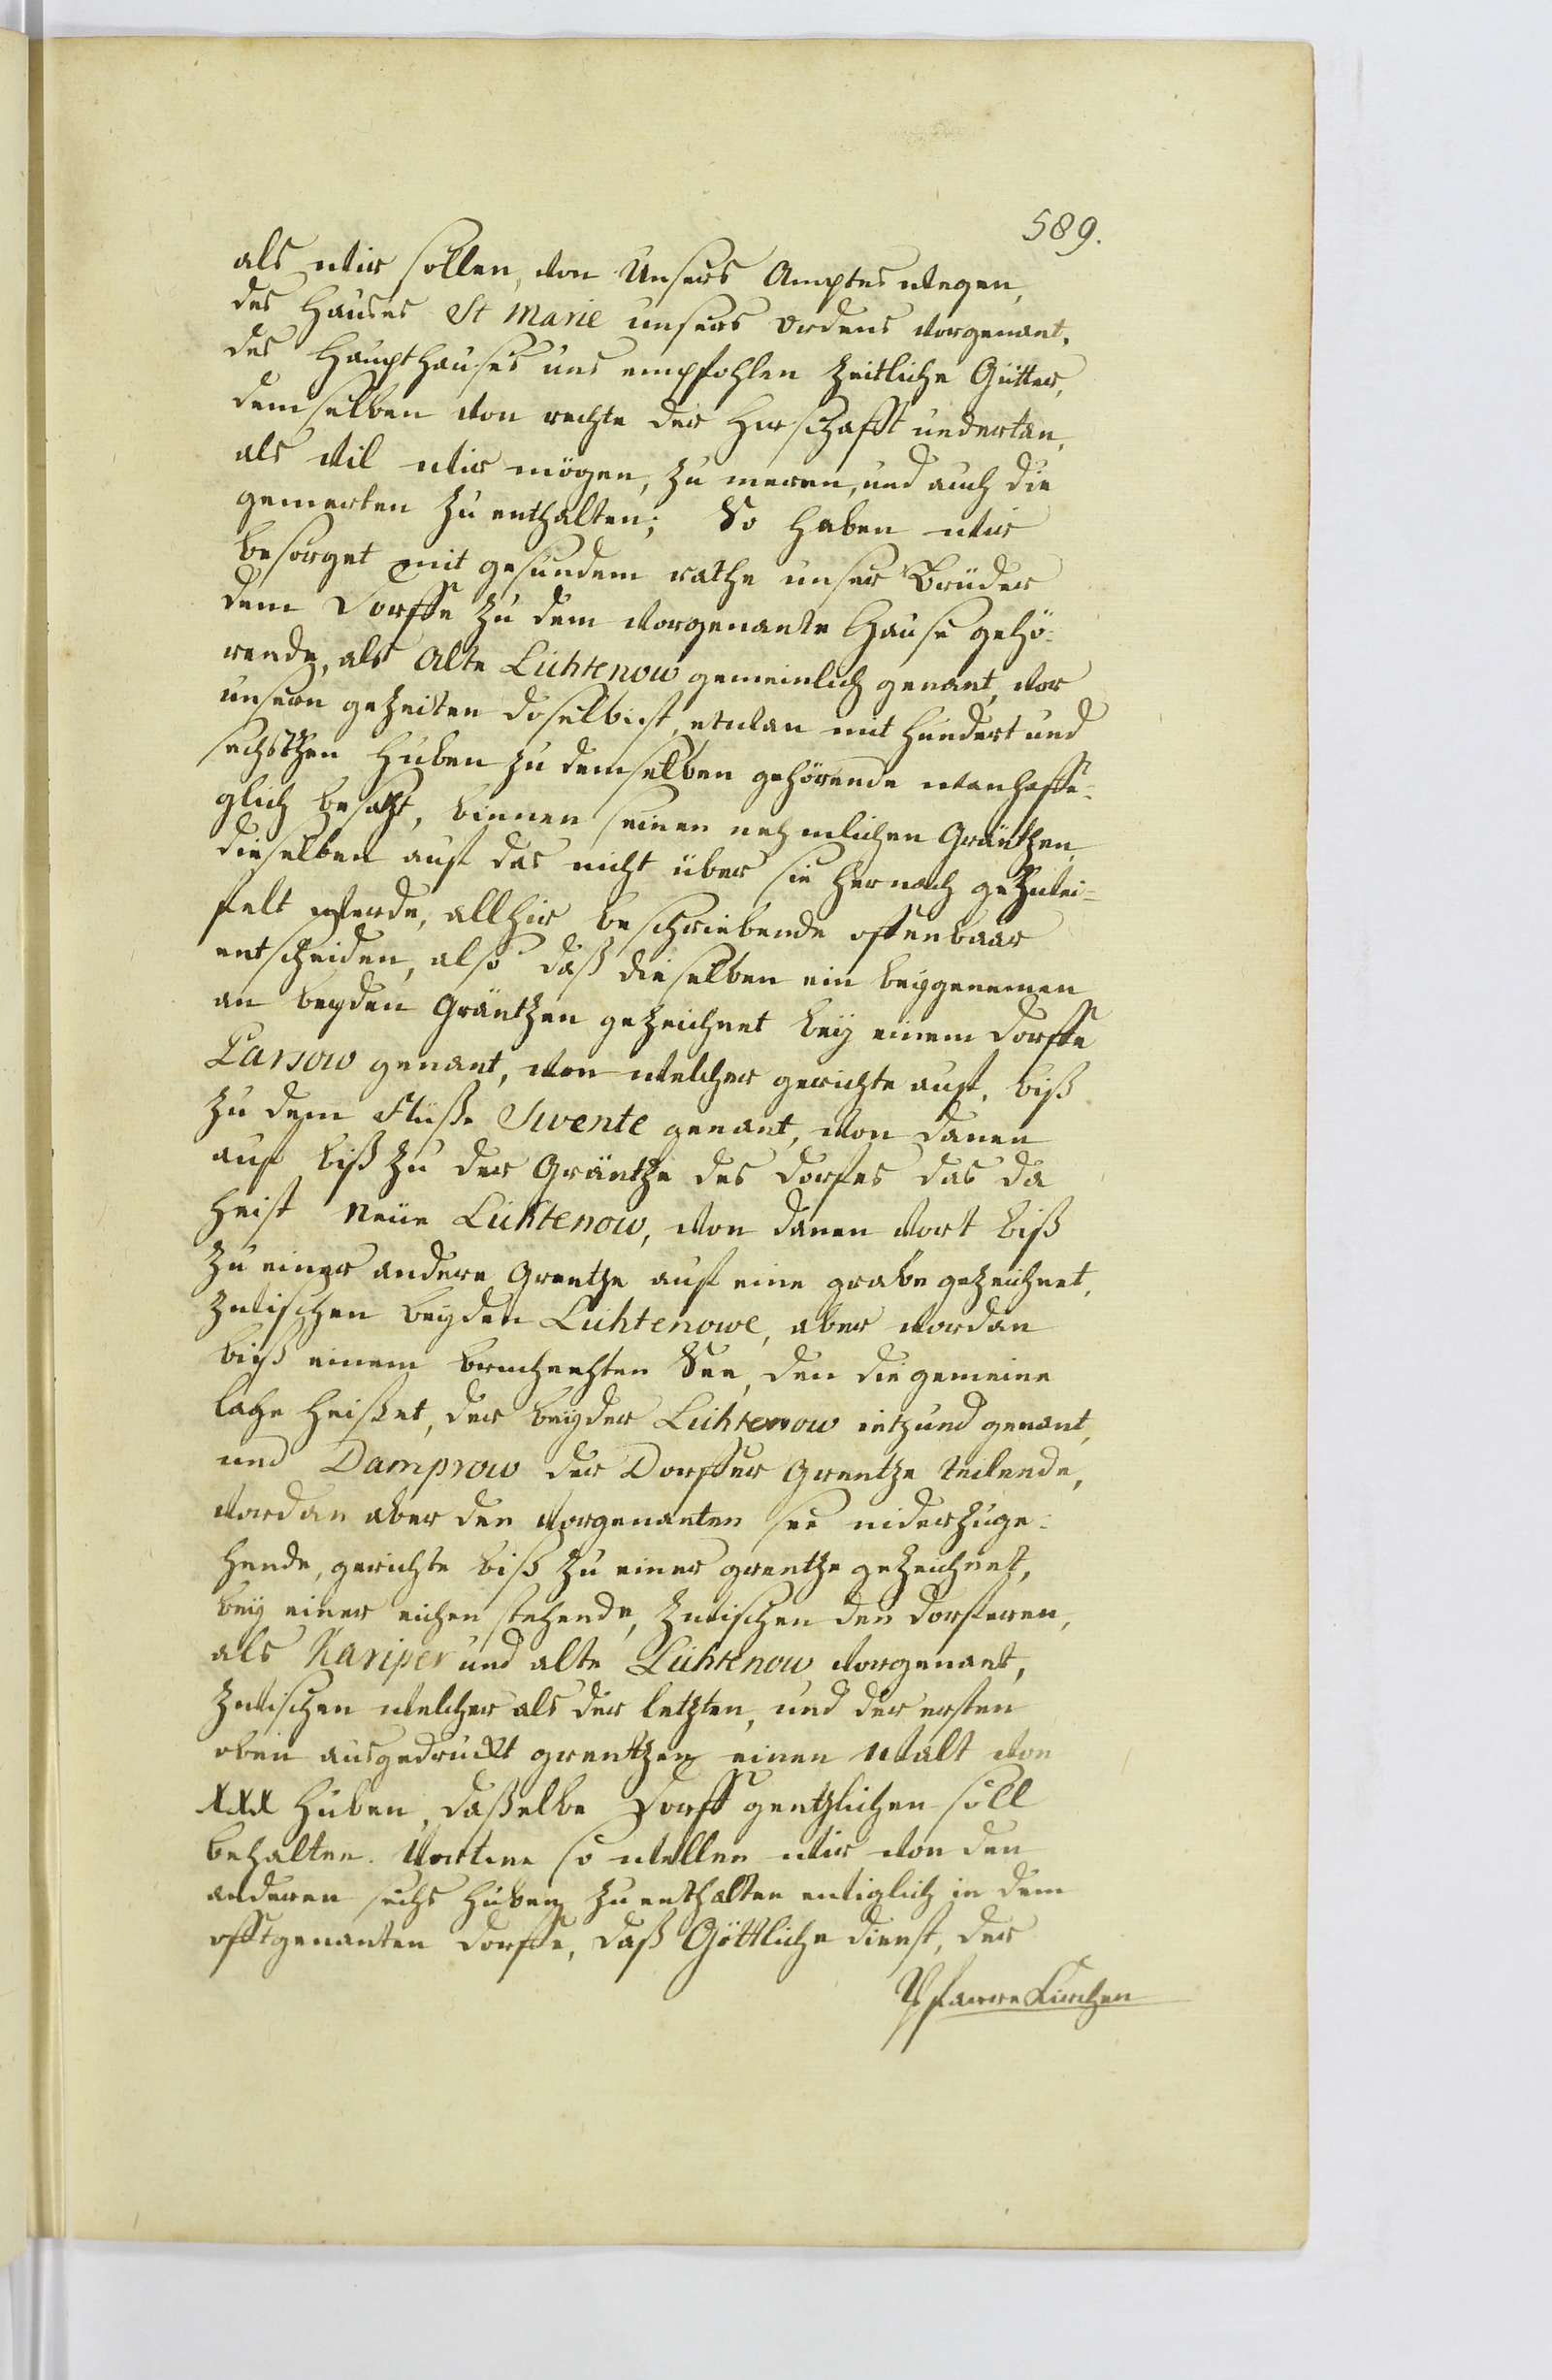 589.
als wir sollen, von Unsers Amptes wegen,
des Hauses St Marie unsers Ordens vorgenant,
des Haupthauses uns empfohlen zeitliche Gütter,
demselben von rechte der Herschafft undertan,
als vil wir mögen, zu meren, und auch die
gemerten zu enthalten; So haben wir
besorget mit gesundem rathe unser Brüder
dem Dorffe zu dem vorgenante Hause gehö-
rende, als Alte Lichtenow gemeinlich genant, vor
unsern gezeiten doselbist, etwan mit hundert und
sechsthen Huben zu demselben gehörende wanhaffti-
glich besatzt, binnen seinen nehmlichen Gräntzen,
dieselben auf das nicht über sie hernach gezwei-
felt werde, allhir beschriebende offenbaar
entscheiden, also daß dieselben ein beygenemen
an beyden Gräntzen gezeichnet bey einem Dorffe
Parsow genant, von welcher gerichte auf, biß
zu dem Fluße Swente genant, von danen
auf biß zu der Gräntze des Dorfes das da
heist Neüe Lichtenow, von danen vort biß
zu einer andere Grentze auf eine grabe gezeichnet,
zwischen beyden Lichtenowe, aber vordan
biß einem bruchechten See, den die gemeine
lahe heißet, der beyder Lichtenow ietzund genant,
und Damprow der Dorffer Grentze teilende,
vordan aber den vorgenanten see niderzuge-
hende, gerichte biß zu einer grentze gezeichnet,
bey einer eichen stehende, zwischen den Dorferen,
als Kariper und alte Lichtenow vorgenant,
zwischen welcher als der letzten, und der ersten
oben ausgedruckt grentzen einen Walt von
XXX Huben, daßelbe Dorff gentzlichen soll
behalten. Vortme so wellen wir von den
anderen sechs Huben zu enthalten entiglich in dem
offtgenanten Dorffe, daß Göttliche dienst, der
PfarreKirchen